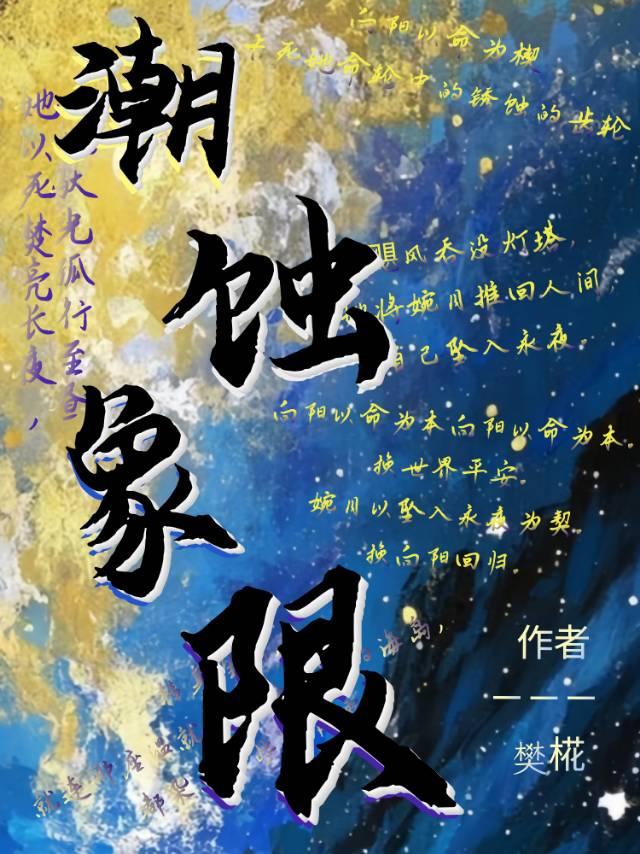 潮蚀象限
向阳以命为楔
卡死她命轮中
的锈蚀的齿轮
她以死楚亮长夜，
伏光孤行至昼
飓风吞没灯塔，
将婉月推回人间
自己坠入永夜。
向阳以命为本向阳以命为本。
换世界平安。
婉月以坠入永夜为契。
换向阳回归。
海岛，
就连她
都是
作者
———
樊椛